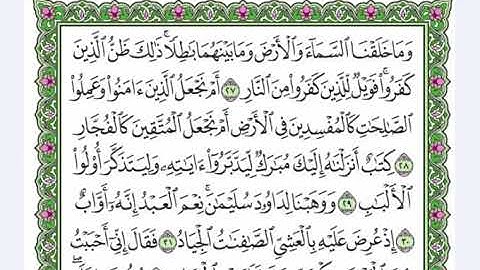 وَمَا خَلَقْنَا ٱلسَّمَآءَ وَٱلْأَرْضَ وَمَا بَيْنَهُمَا بَٰطِلًا ۚ ذَٰلِكَ ظَنُّ ٱلَّذِينَ
كَفَرُوا۟ ۚ فَوَيْلٌ لِّلَّذِينَ كَفَرُوا۟ مِنَ ٱلنَّارِ ٢٧ أَمْ نَجْعَلُ ٱلَّذِينَ ءَامَنُوا۟ وَعَمِلُوا۟
ٱلصَّٰلِحَٰتِ كَٱلْمُفْسِدِينَ فِى ٱلْأَرْضِ أَمْ نَجْعَلُ ٱلْمُتَّقِينَ كَٱلْفُجَّارِ
٢٨ كِتَٰبٌ أَنزَلْنَٰهُ إِلَيْكَ مُبَٰرَكٌ لِّيَدَّبَّرُوٓا۟ ءَايَٰتِهِۦ وَلِيَتَذَكَّرَ أُو۟لُوا۟
ٱلْأَلْبَٰبِ ٢٩ وَوَهَبْنَا لِدَاوُۥدَ سُلَيْمَٰنَ ۚ نِعْمَ ٱلْعَبْدُ ۖ إِنَّهُۥٓ أَوَّابٌ
٣٠ إِذْ عُرِضَ عَلَيْهِ بِٱلْعَشِىِّ ٱلصَّٰفِنَٰتُ ٱلْجِيَادُ ٣١ فَقَالَ إِنِّىٓ أَحْبَبْتُ